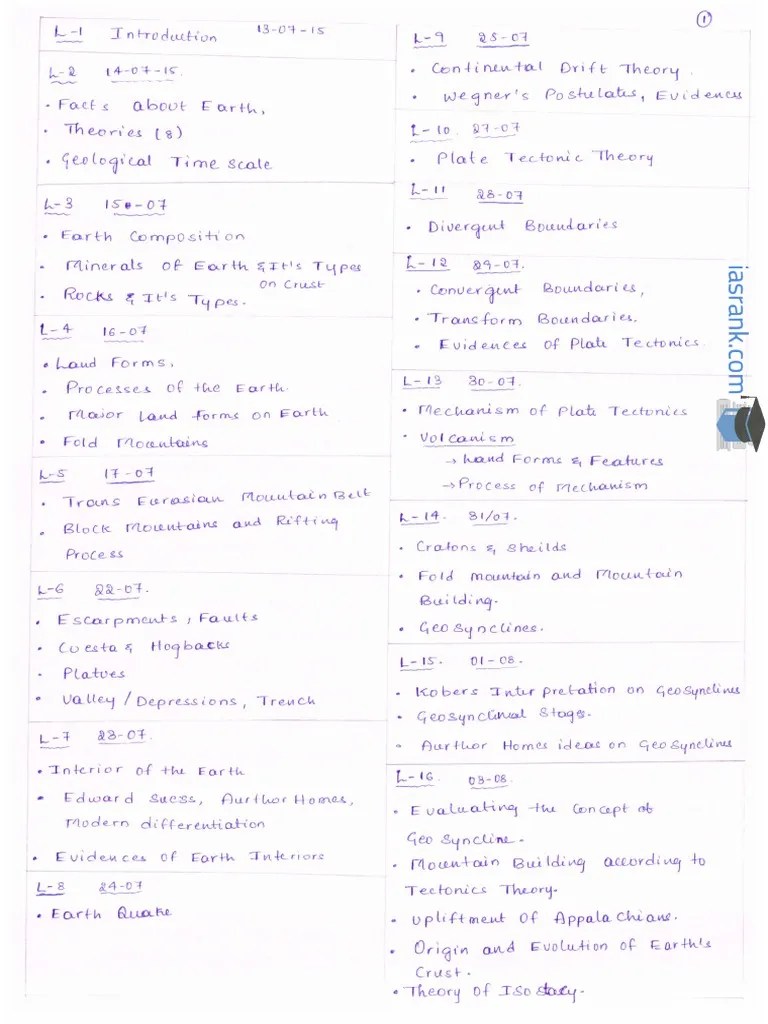 1
L-1 Introduction 13-07-15
L-2 14-07-15.
• Facts about Earth,
• Theories (8)
• Geological Time Scale
L-3 15-07
• Earth Composition
• Minerals of Earth & It's Types
on Crust
• Rocks & It's Types.
L-4 16-07
• Land Forms,
• Processes of the Earth.
• Major Land forms on Earth
• Fold Mountains
L-5 17-07
• Trans Eurasian Mountain Belt
• Block Mountains and Rifting
Process
L-6 22-07.
• Escarpments, Faults
• Cuesta & Hogbacks
• Platues
• Valley / Depressions, Trench
L-7 23-07.
• Interior of the Earth
• Edward Suess, Aurthor Homes,
Modern differentiation
• Evidences of Earth Interiors
L-8 24-07
• Earth Quake
L-9 25-07
• Continental Drift Theory.
• Wegner's Postulates, Evidences
L-10. 27-07
• Plate Tectonic Theory
L-11 28-07
• Divergent Boundaries
L-12 29-07.
• Convergent Boundaries,
• Transform Boundaries.
• Evidences of Plate Tectonics.
L-13 30-07.
• Mechanism of Plate Tectonics
• Volcanism
→ Land Forms & Features
→ Process of Mechanism
L-14. 31/07.
• Cratons & Sheilds
• Fold mountain and Mountain
Building.
• Geosynclines.
L-15. 01-08.
• Kobers Interpretation on Geosynclines
• Geosynclinal Stages.
• Aurthor Homes ideas on Geosynclines
L-16. 03-08.
• Evaluating the Concept of
Geo Syncline.
• Mountain Building according to
Tectonics Theory.
• Upliftment Of Appalachians.
• Origin and Evolution of Earth's
Crust.
• Theory of Isostacy.
iasrank.com